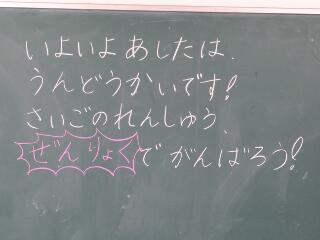 いよいよ あしたは、
うんどうかいです!
さいごのれんしゅう、
ぜんりょくで がんばろう!